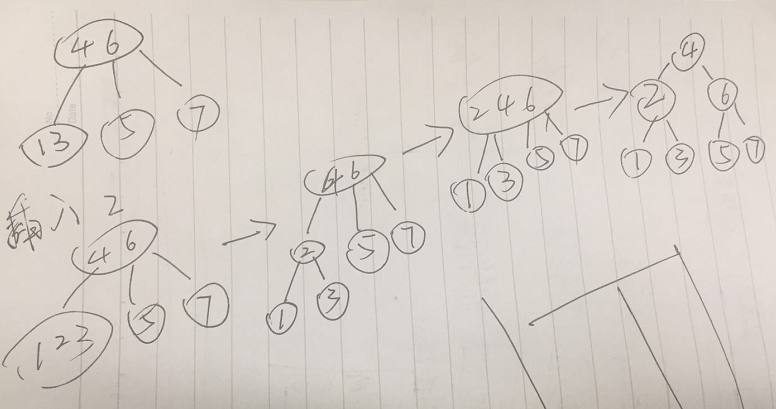 4 6
1 3
5
7
入 2
4 6
1 2 3
5
7
4 6
2
5
7
1
3
2 4 6
1
3
5
7
4
2
6
1
3
5
7